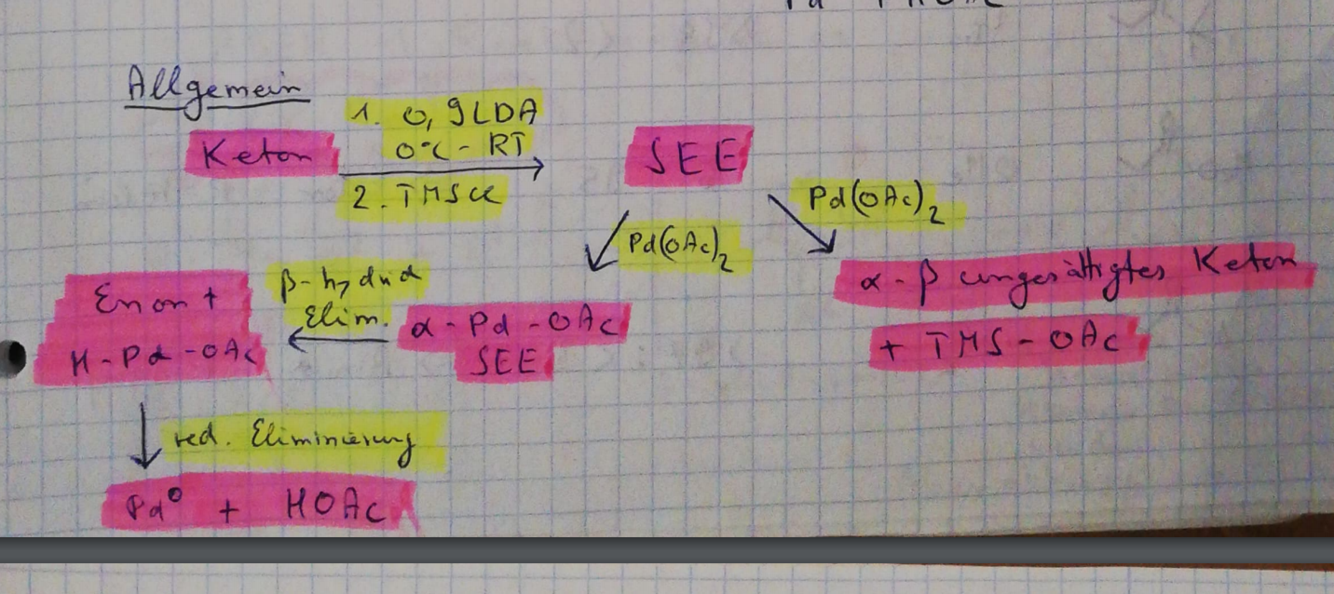 Allgemein
1. 0,9 LDA
Keton
0°C - RT
SEE
2. TMSCl
Pd(OAc)2
Pd(OAc)2
α-β ungesättigtes Keton
+ TMS-OAc
β-hydrid
Elim.
Enon +
H-Pd-OAc
α-Pd-OAc
SEE
red. Eliminierung
Pd⁰ + HOAc